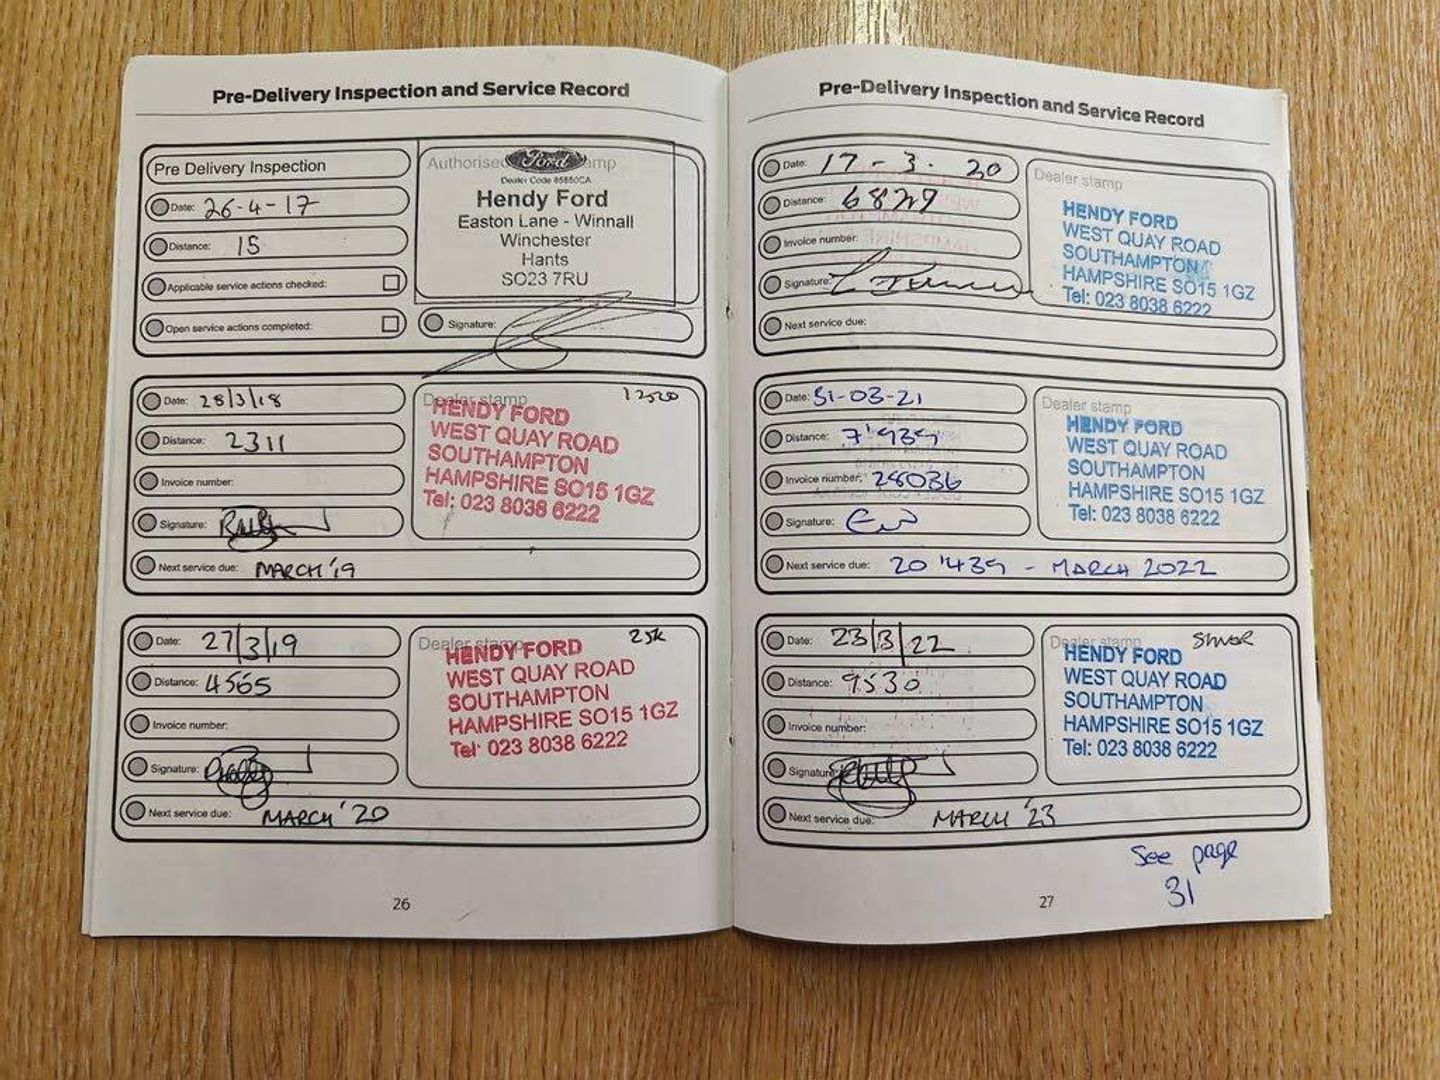 Pre-Delivery Inspection and Service Record
Pre Delivery Inspection
Date: 26-4-17
Distance: 15
Applicable service actions checked:
Open service actions completed:
Authorised
Ford
Dealer Code 85850CA
Hendy Ford
Easton Lane - Winnall
Winchester
Hants
SO23 7RU
Signature:
Date: 28/3/18
Distance: 2311
Invoice number:
Signature:
Next service due: MARCH '19
Dealer stamp
HENDY FORD
WEST QUAY ROAD
SOUTHAMPTON
HAMPSHIRE SO15 1GZ
Tel: 023 8038 6222
Date: 27/3/19
Distance: 4565
Invoice number:
Signature:
Next service due: MARCH '20
Dealer stamp 25k
HENDY FORD
WEST QUAY ROAD
SOUTHAMPTON
HAMPSHIRE SO15 1GZ
Tel: 023 8038 6222
26
Pre-Delivery Inspection and Service Record
Date: 17-3-20
Distance: 6829
Invoice number:
Signature:
Next service due:
Dealer stamp
HENDY FORD
WEST QUAY ROAD
SOUTHAMPTON
HAMPSHIRE SO15 1GZ
Tel: 023 8038 6222
Date: 31-03-21
Distance: 7'939
Invoice number: 28036
Signature:
Next service due: 20'439 - MARCH 2022
Dealer stamp
HENDY FORD
WEST QUAY ROAD
SOUTHAMPTON
HAMPSHIRE SO15 1GZ
Tel: 023 8038 6222
Date: 23/3/22
Distance: 9530
Invoice number:
Signature:
Next service due: MARCH '23
Dealer stamp
HENDY FORD
WEST QUAY ROAD
SOUTHAMPTON
HAMPSHIRE SO15 1GZ
Tel: 023 8038 6222
See page
31
27